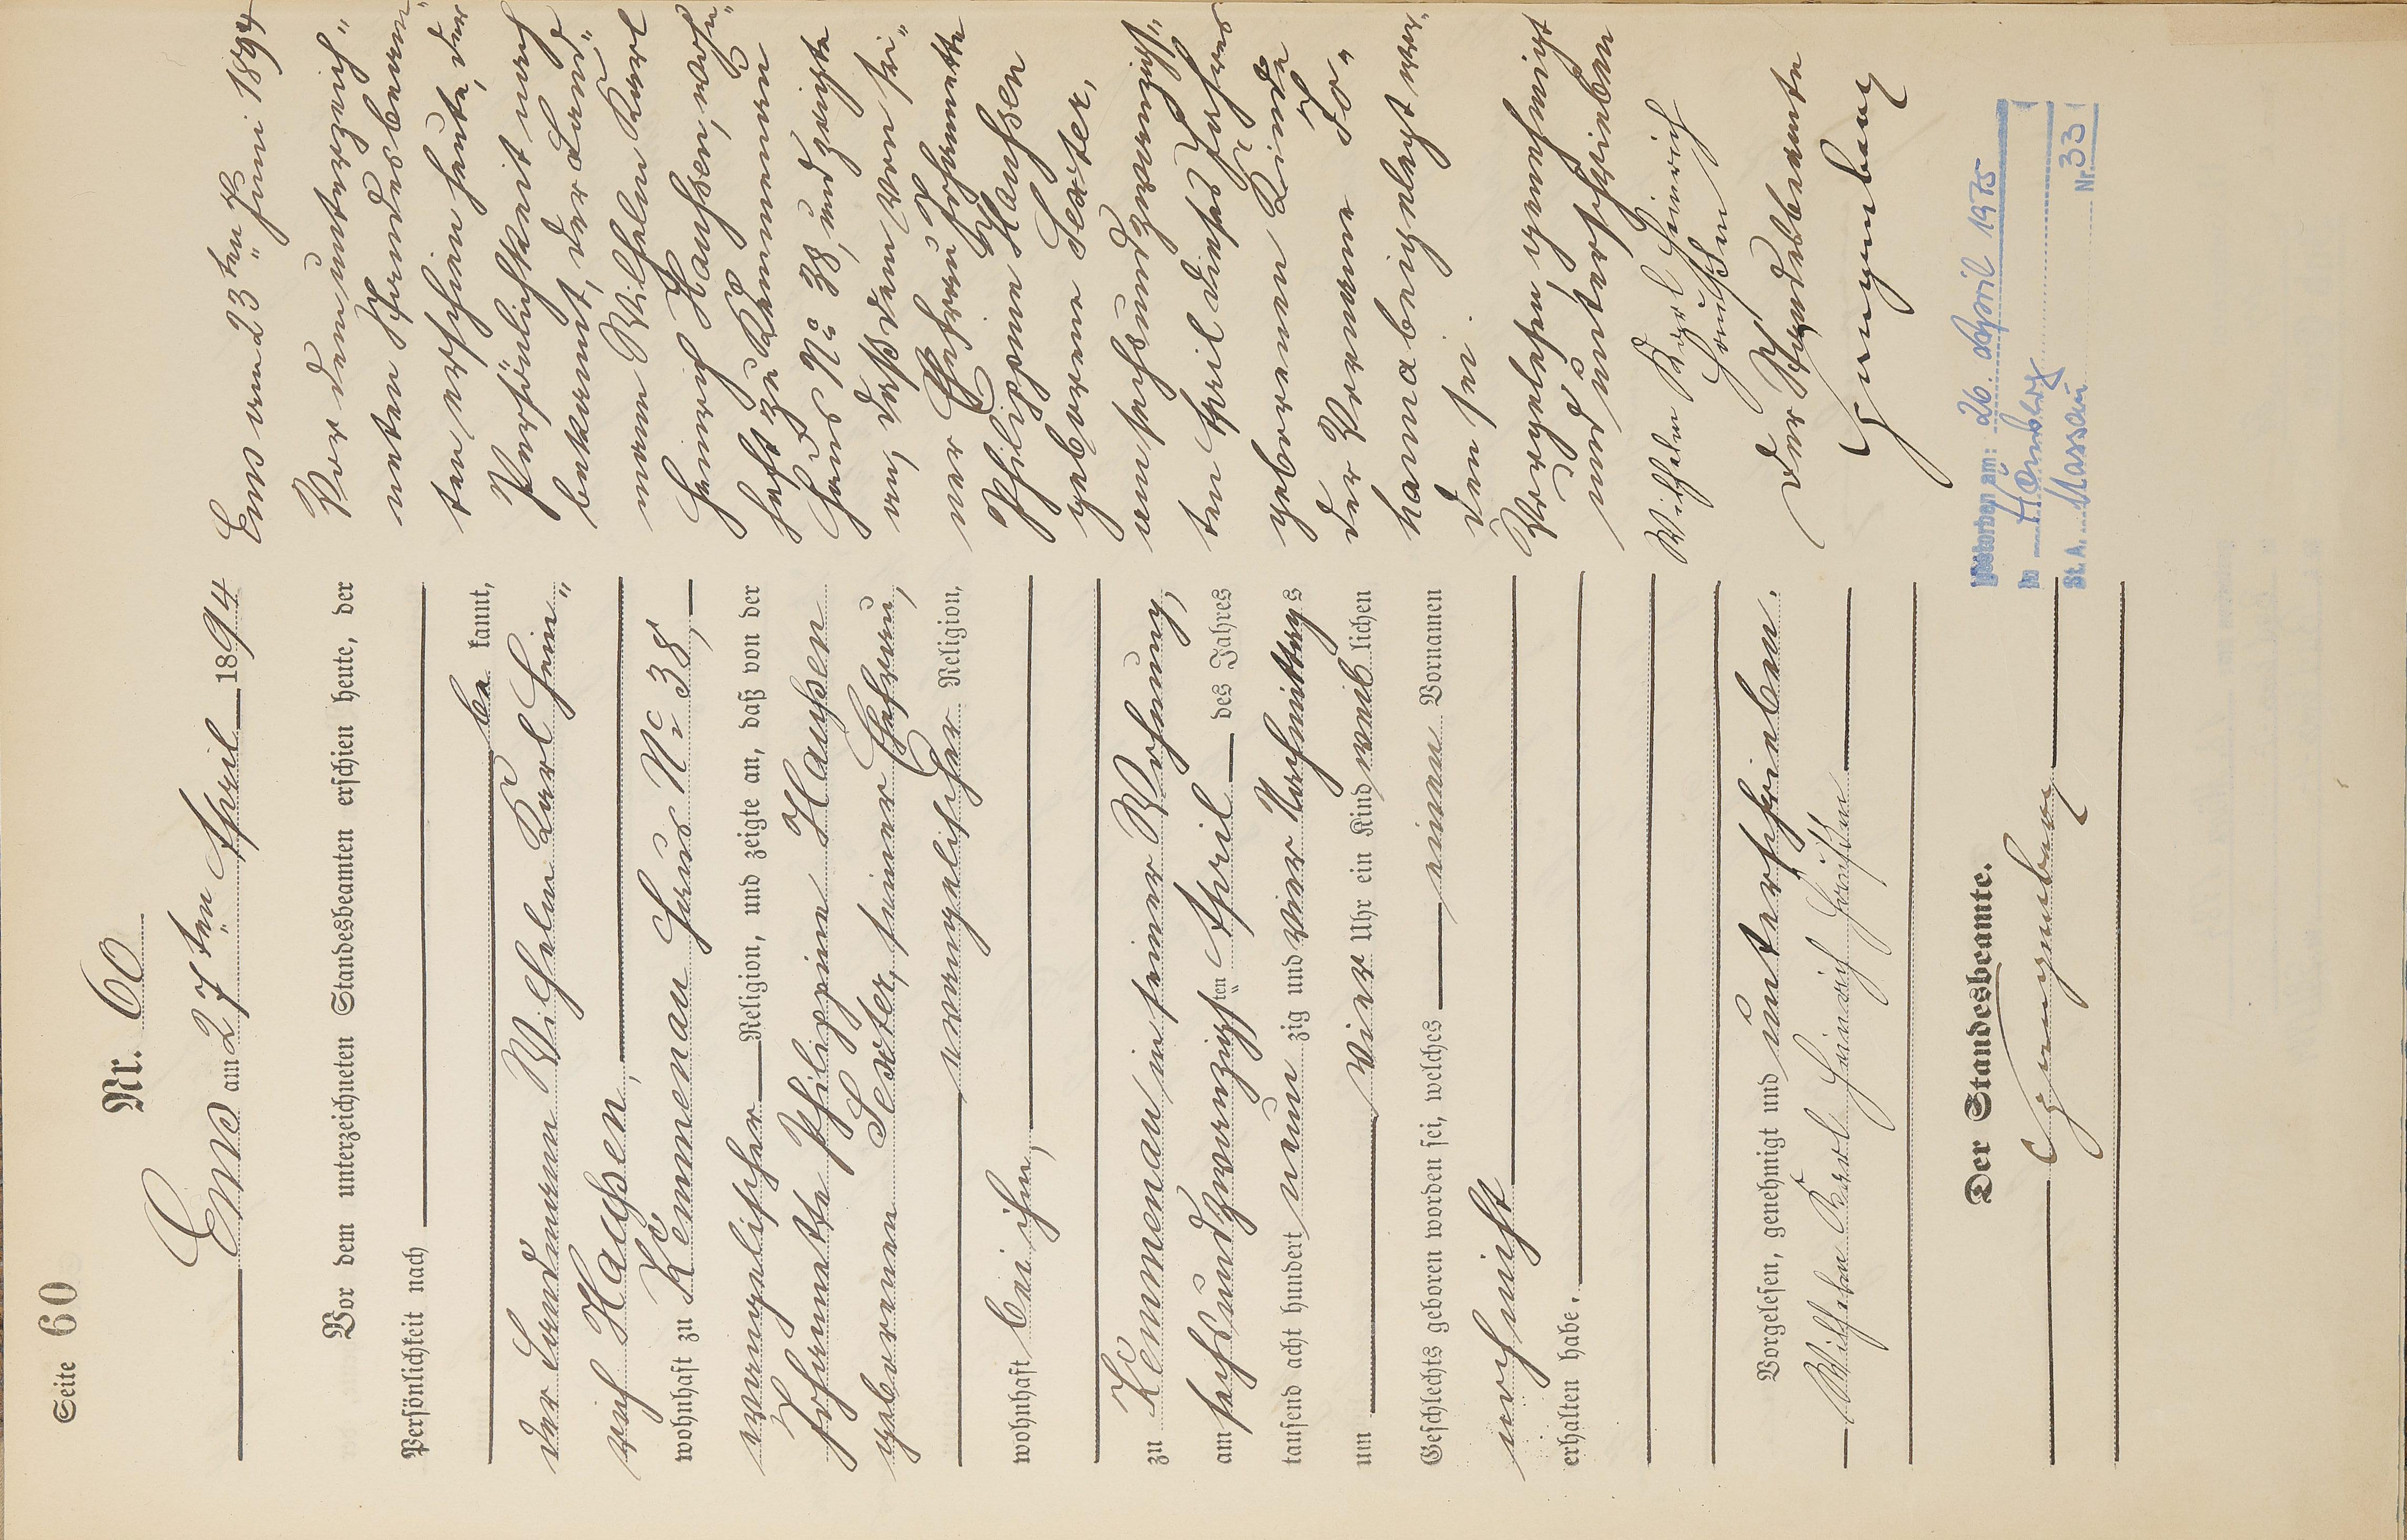 Seite 60
Nr. 60
Ems am 27ten April 1894
Vor dem unterzeichneten Standesbeamten erschien heute, der
Persönlichkeit nach
be kannt,
der Landmann Wilhelm Karl Hein„
rich Haußen,
wohnhaft zu Kemmenau Haus No 38,
evangelischer Religion, und zeigte an, daß von der
Johannette Philippine Haußen
geborenen Sexter, seiner Ehefrau,
evangelischer Religion,
wohnhaft bei ihm,
zu Kemmenau in seiner Wohnung,
am sechsundzwanzigsten April des Jahres
tausend acht hundert neun zig und vier Nachmittags
um vier Uhr ein Kind weiblichen
Geschlechts geboren worden sei, welches einen Vornamen
noch nicht
erhalten habe.
Vorgelesen, genehmigt und unterschrieben.
Wilhelm Karl Heinrich Haußen
Der Standesbeamte.
Ems am 23ten Juni 1894
Vor dem unterzeich„
neten Standesbeam„
ten erschien heute, der
Persönlichkeit nach
bekannt, der Land„
mann Wilhelm Karl
Heinrich Haußen, wohn„
haft zu Kemmenau
Haus No 38, und zeigte
an, daß dem von sei„
ner Ehefrau Johannette
Philippine Haußen
geborene Sexter,
am sechsundzwanzigst„
ten April dieses Jahres
geborenen Kinde
der Vorname Jo„
hanna beigelegt wor„
den sei.
Vorgelesen, genehmigt
und unterschrieben
Wilhelm Karl Heinrich
Haußen
Der Standesbeamte
Gestorben am: 26. April 1975
in
St. A. Nassau Nr. 33